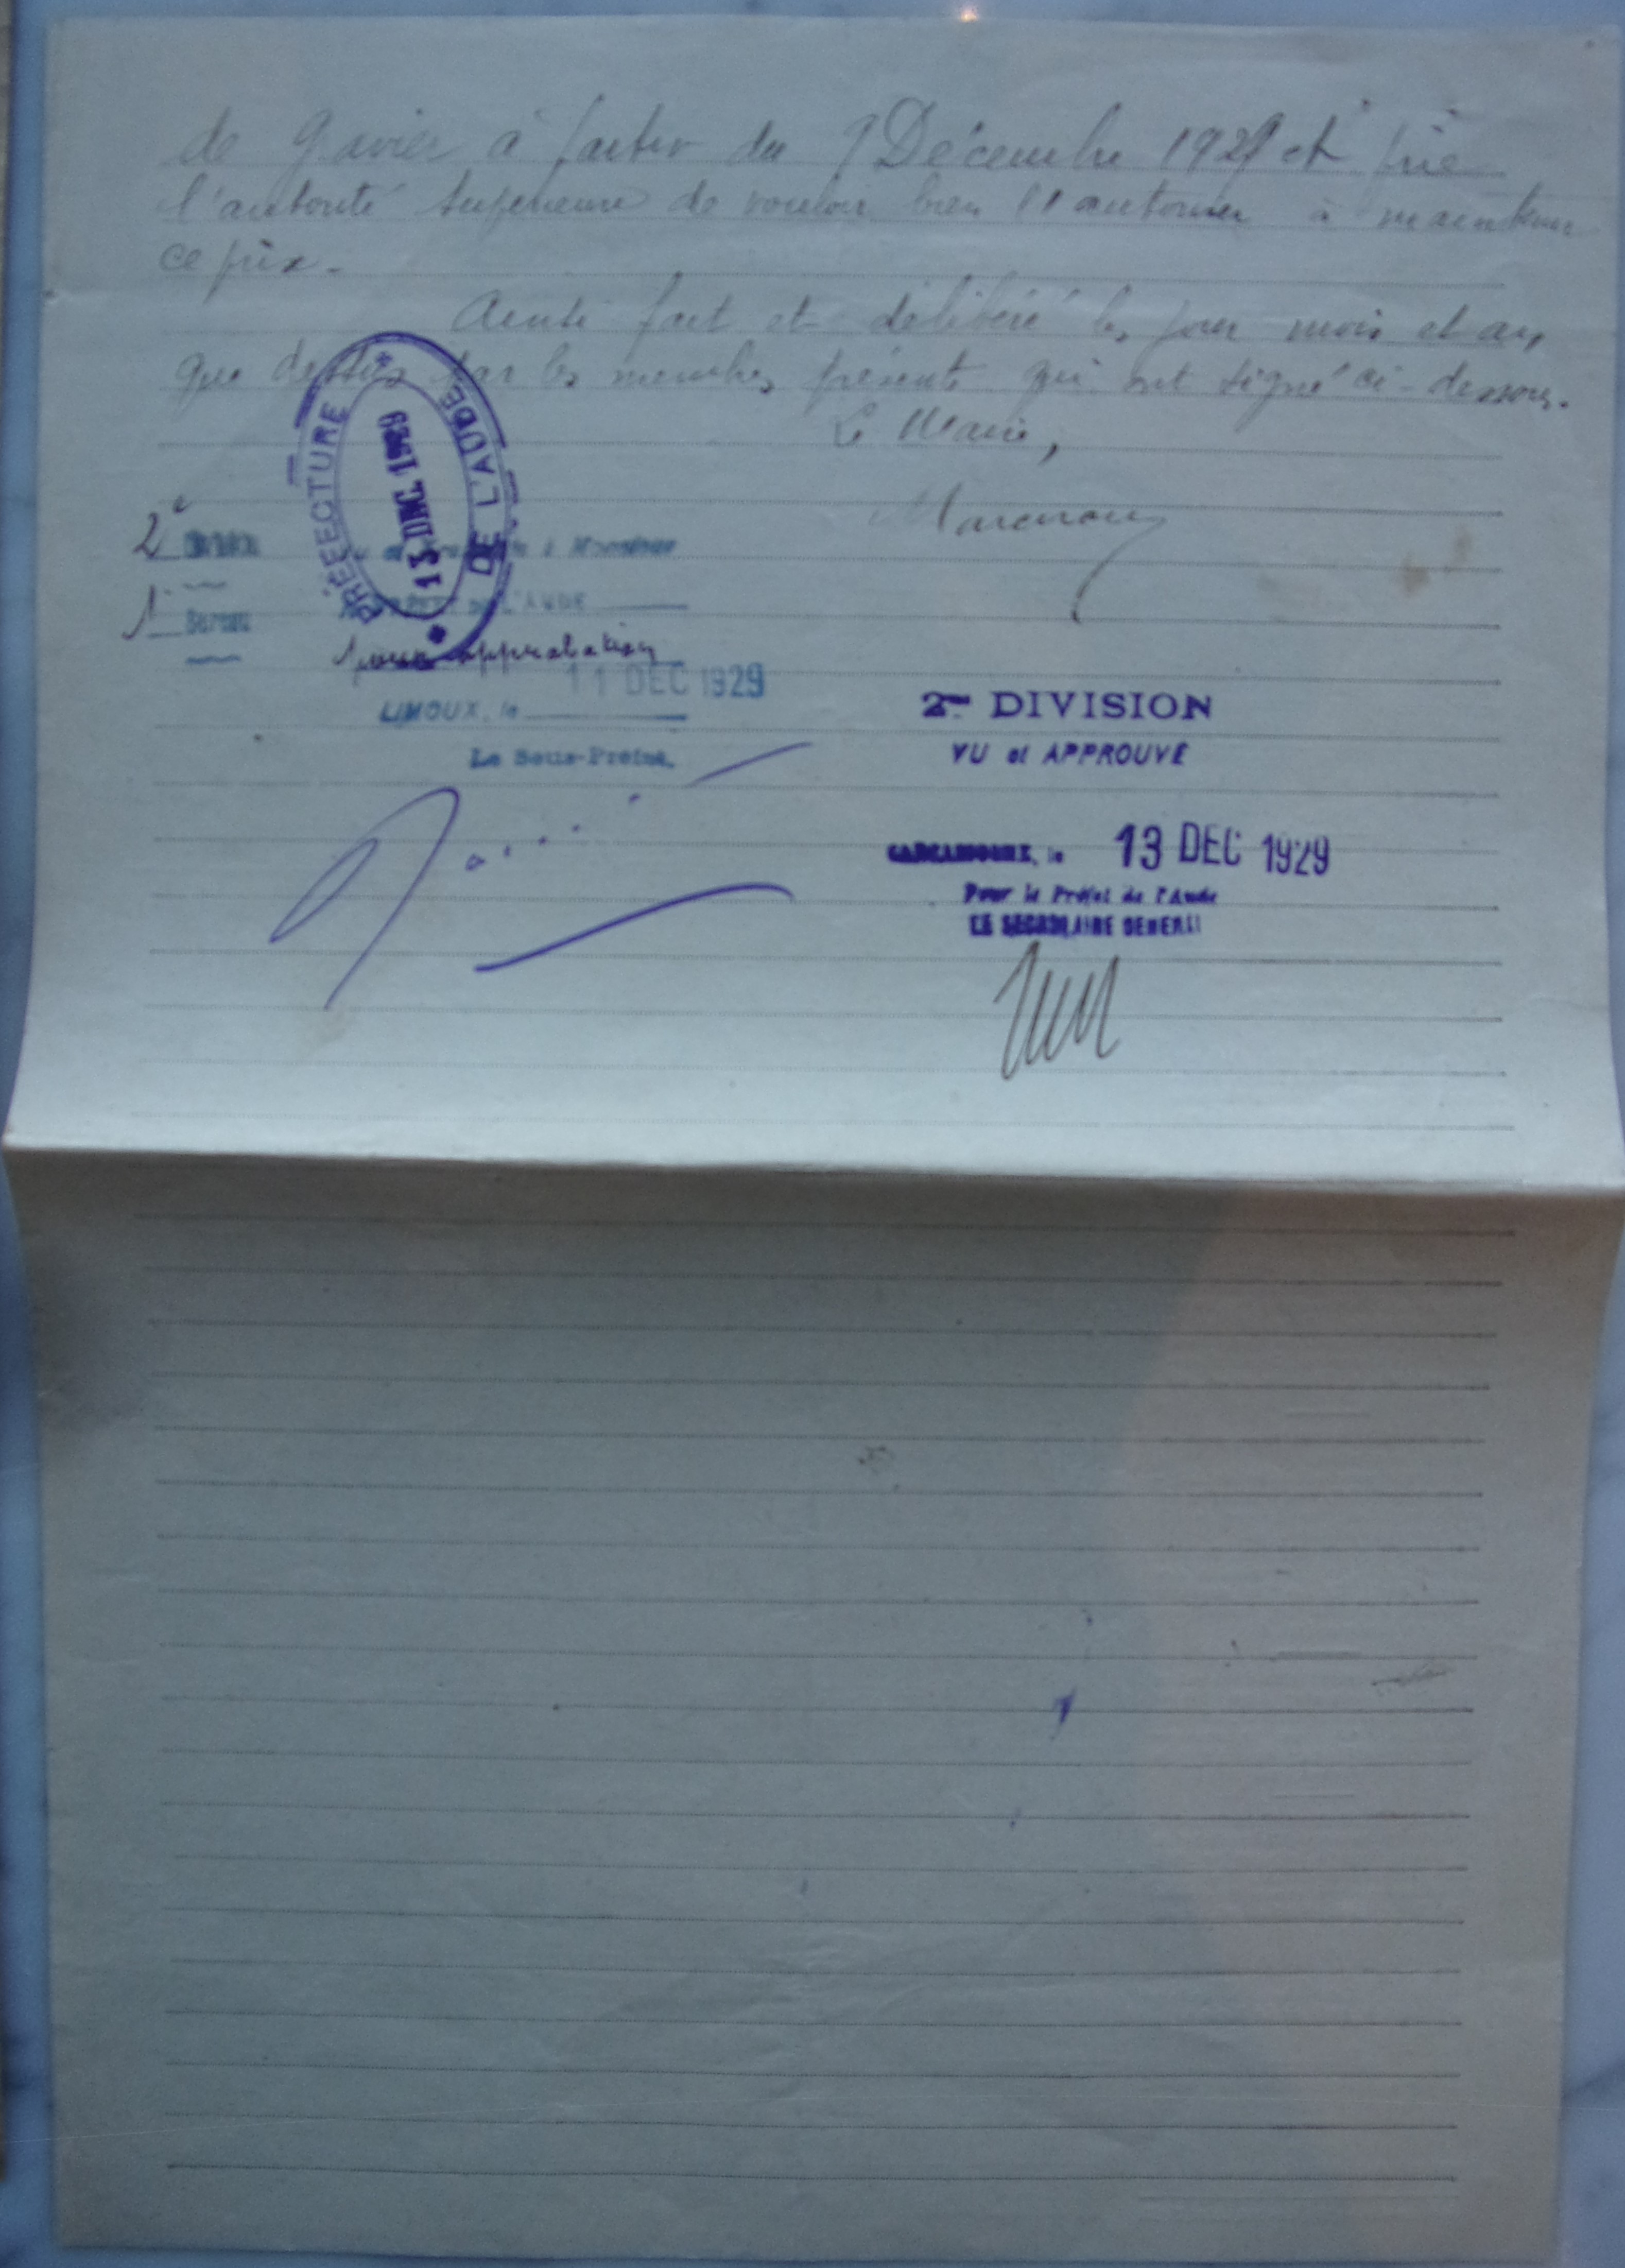 de gravier à partir du 9 Décembre 1929 et prie
l'autorité supérieure de vouloir bien l'autoriser à maintenir
ce prix.
Ainsi fait et délibéré les jour mois et an,
que dessus par les membres présents qui ont signé ci-dessous.
Le Maire,
PRÉFECTURE DE L'AUDE
13 DEC. 1929
2e Division
1er Bureau
à Monsieur
DE L'AUDE
pour approbation
11 DEC 1929
LIMOUX, le
Le Sous-Préfet,
2me DIVISION
VU et APPROUVÉ
CARCASSONNE, le 13 DEC 1929
Pour le Préfet de l'Aude
LE SECRETAIRE GENERAL